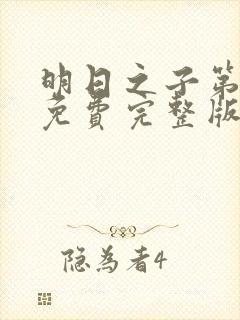 明日之子第
免费完整版
隐为者4